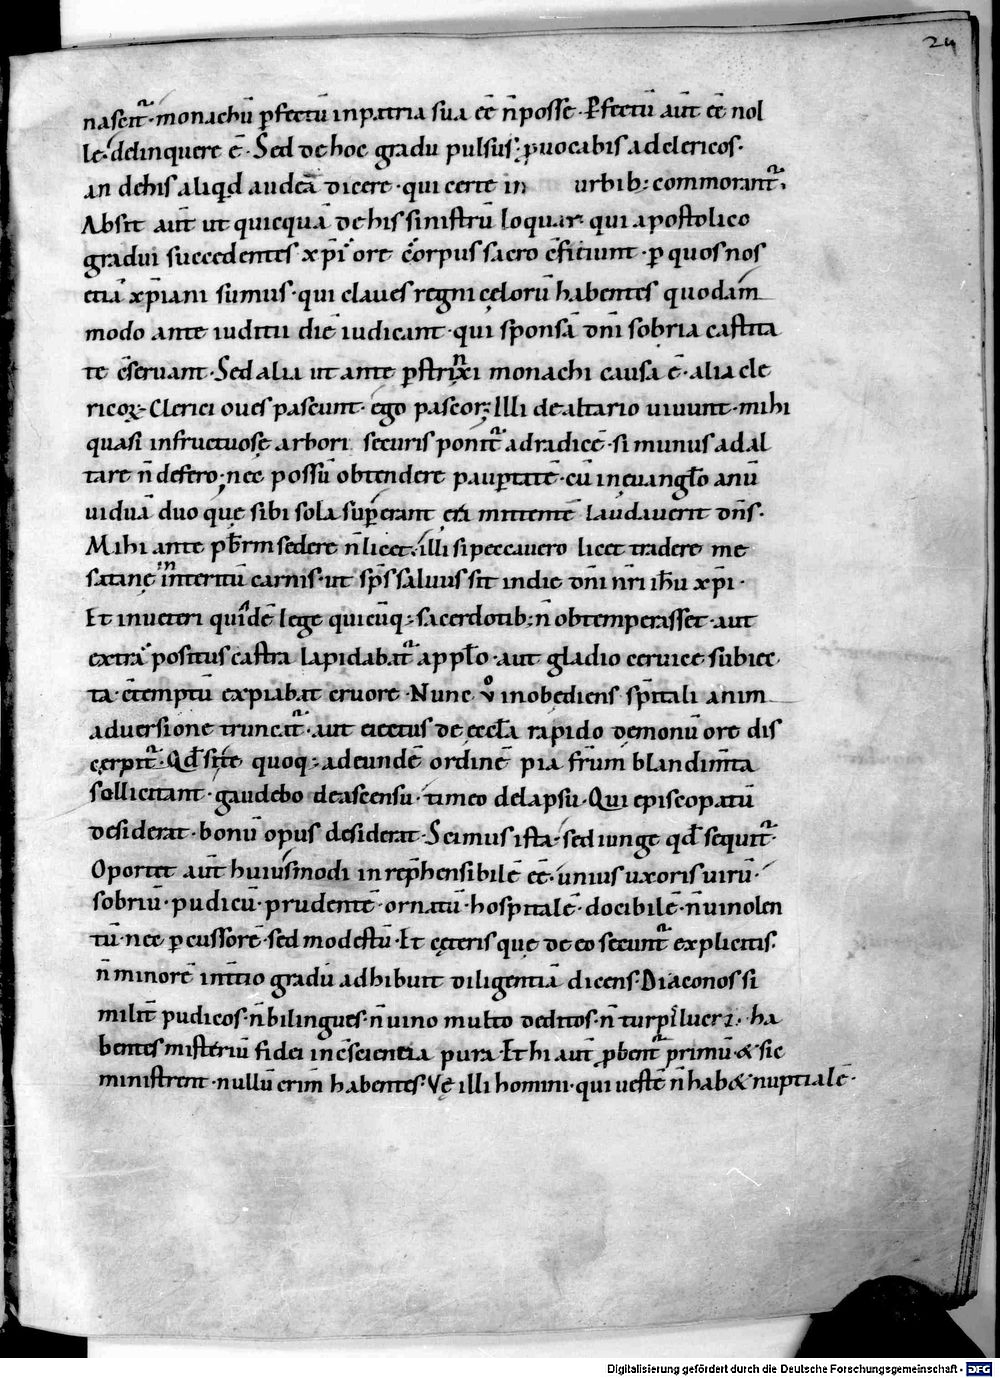 24
nascit᷑· monachū ꝑfectū in patria sua eē n̄ posse· Ꝑfectū aūt eē nol
le· delinquere ē· Sed de hoc gradu pulsus; ꝓuocabis ad clericos·
an de his aliqd̄ audeā dicere· qui certe in urbib; commorant᷑·
Absit aūt ut quicquā de his sinistrū loquar· qui apostolico
gradui succedentes xp̄i ore c̄orpus sacro c̄ficiunt· ꝑ quos nos
etiā xp̄iani sumus· qui claues regni celorū habentes quodam
modo ante iuditii diē iudicant· qui sponsā dn̄i sobria castita
te c̄seruant· Sed alia ut ante ꝑstrinxi monachi causa ē· alia cle
ricoꝝ· Clerici oues pascunt· ego pascor; Illi de altario uiuunt· mihi
quasi infructuosę arbori securis ponit᷑ ad radicē· si munus ad al
tare n̄ defero; nec possū obtendere pauꝑtatē· cū in euanglo anū
uiduā duo que sibi sola suꝑerant ęra mittentē laudauerit dn̄s·
Mihi ante pbr̄m sedere n̄ licet· illi si peccauero licet tradere me
satanę in interitū carnis· ut sp̄s saluus sit in die dn̄i nr̄i ihū xp̄i·
Et in ueteri quidē lege quicūq; sacerdotib; n̄ obtemperasset· aut
extra positus castra lapidabat᷑ a pplo· aut gladio ceruice subiec
ta· c̄temptū expiabat cruore· Nunc ů inobediens sp̄itali anim
aduersione truncat᷑· aut eiectus de eccla rapido demonū ore dis
cerpit᷑· Qd̄ si te quoq; ad eundē ordinē pia fr̄um blandim̄ta
sollicitant· gaudebo de ascensu· timeo de lapsu· Qui episcopatū
desiderat· bonū opus desiderat· Scimus ista· sed iunge qd̄ sequit᷑·
Oportet aūt huiusmodi inrep̄hensibilē eē· unius uxoris uirū·
sobriū· pudicū· prudentē· ornatū· hospitalē· docibilē· n̄ uinolen
tū· nec ꝑcussorē· sed modestū· Et cęteris que de eo secunt᷑ explicitis·
n̄ minorē in t̄tio gradu adhibuit diligentiā dicens· Diaconos si
milit̄ pudicos· n̄ bilingues· n̄ uino multo deditos· n̄ turpilucri· ha
bentes misteriū fidei in c̄scientia pura· Et hi aūt ꝓbent᷑ primū & sic
ministrent· nullū crim̄ habentes· Vę illi homini· qui uestē n̄ hab& nuptialē·
Digitalisierung gefördert durch die Deutsche Forschungsgemeinschaft - DFG